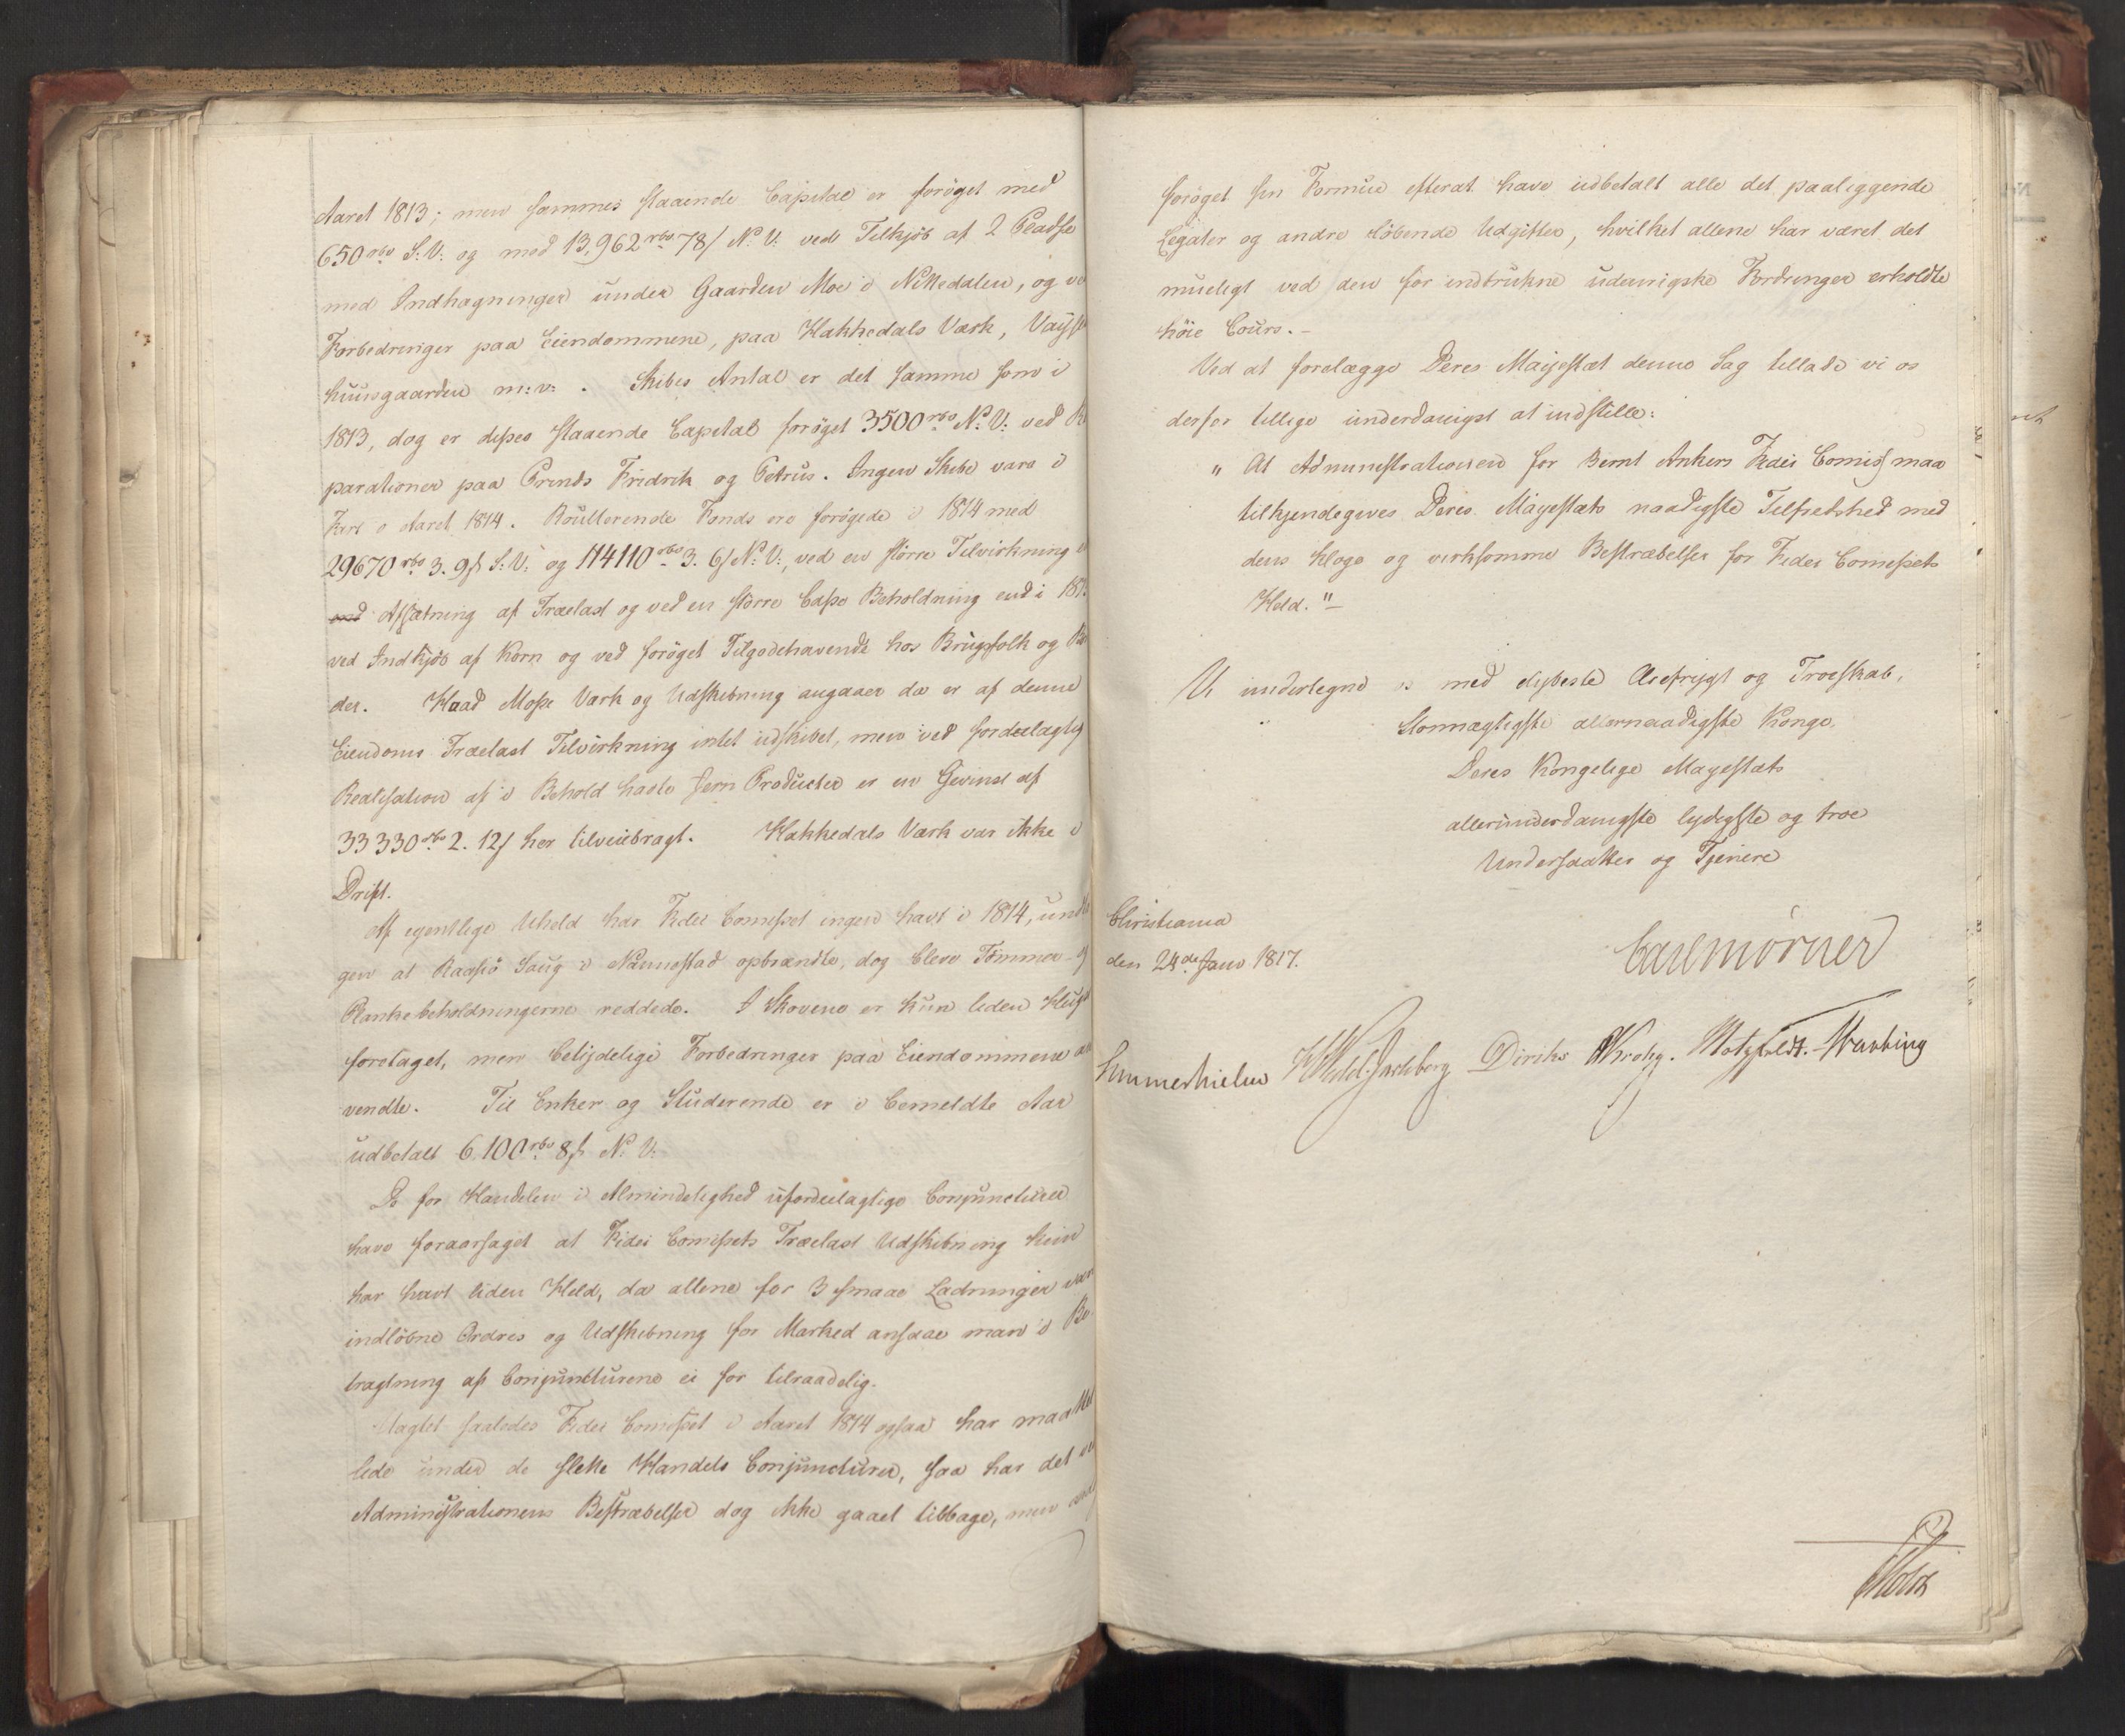 Aaret 1813; men sammes staaende Capital er forøget med
650 rbd S: V: og med 13,962 rbd 78 s N: V: ved Tilkjøb af 2 Pladse
med Indhagninger under Gaarden Moe i Nittedalen, og
Forbedringer paa Eiendommene, paa Hakkedals Værk,
huusgaarden m: v: . Skibes Antal er det samme som i
1813, dog er disses staaende Capital forøget 3500 rbd N: V: ved Re
parationer paa Prinds Fridrik og Petrus. Ingen Skibe vare i
Fart i Aaret 1814. Roullerende Fonds ere forøgede i 1814 med
29670 rbd 3. 9 s S: V: og 114110 rbd 3. 6 s N: V:, ved en større Tilvirkning
Afsætning af Trælast og ved en større Casse Beholdning end i 181
ved Indkjøb af Korn og ved forøget Tilgodehavende hos Brugsfolk og
der. Hvad Mosse Værk og Udskibning angaaer da er af denne
Eiendoms Trælast Tilvirkning intet udskibet, men ved fordeelagtig
Realisation af i Behold havte Jern Producter er en Gevinst af
33330 rbd 2. 12 s her tilveiebragt. Hakkedals Værk var ikke i
Drift.
Af egentlige Uheld har Fidei Comisset ingen havt i 1814, undta
gen at Raasjø Saug i Nannestad opbrændte, dog bleve Tømmer og
Plankebeholdningerne reddede. I Skovene er kun liden Hugst
foretaget, men betydelige Forbedringer paa Eiendommene an
vendte. Til Enker og Studerende er i bemeldte Aar
udbetalt 6,100 rbd 8 s N: V:
De for Handelen i Almindelighed ufordeelagtige Conjuncturer
have foraarsaget at Fidei Comissets Trælast Udskibning kun
har havt liden Held, da allene for 3 smaae Ladninger vare
indløbne Ordres og Udskibning for Marked ansaae man i Be
tragtning af Conjuncturene ei for tilraadelig.
Uagtet saaledes Fidei Comisset i Aaret 1814 ogsaa har maattet
lide under de slette Handels Conjuncturer, saa har det ved
Administrationens Bestræbelser dog ikke gaaet tilbage, men
forøget sin Formue efterat have udbetalt alle det paaliggende
Legater og andre løbende Udgifter, hvilket allene har været det
mueligt ved den for inddrukne udenrigske Fordringer erholdte
høie Cours. –
Ved at forelægge Deres Majestæt denne Sag tillade vi os
derfor tillige underdanigst at indstille:
" At Administrationen for Bernt Ankers Fidei Comiss maa
tilkjendegives Deres Majestæts naadigste Tilfredshed med
dens kloge og virksomme Bestræbelser for Fidei Comissets
Held. " –
Vi undertegne os med dybeste Ærefrygt og Troeskab,
Stormægtigste allernaadigste Konge,
Deres Kongelige Majestæts
allerunderdanigste lydigste og troe
Undersaatter og Tjenere
Christiania
den 24de Janv 1817.
Carl Mörner
Sommerhielm Diriks Krohg. Motzfeldt.
Holst